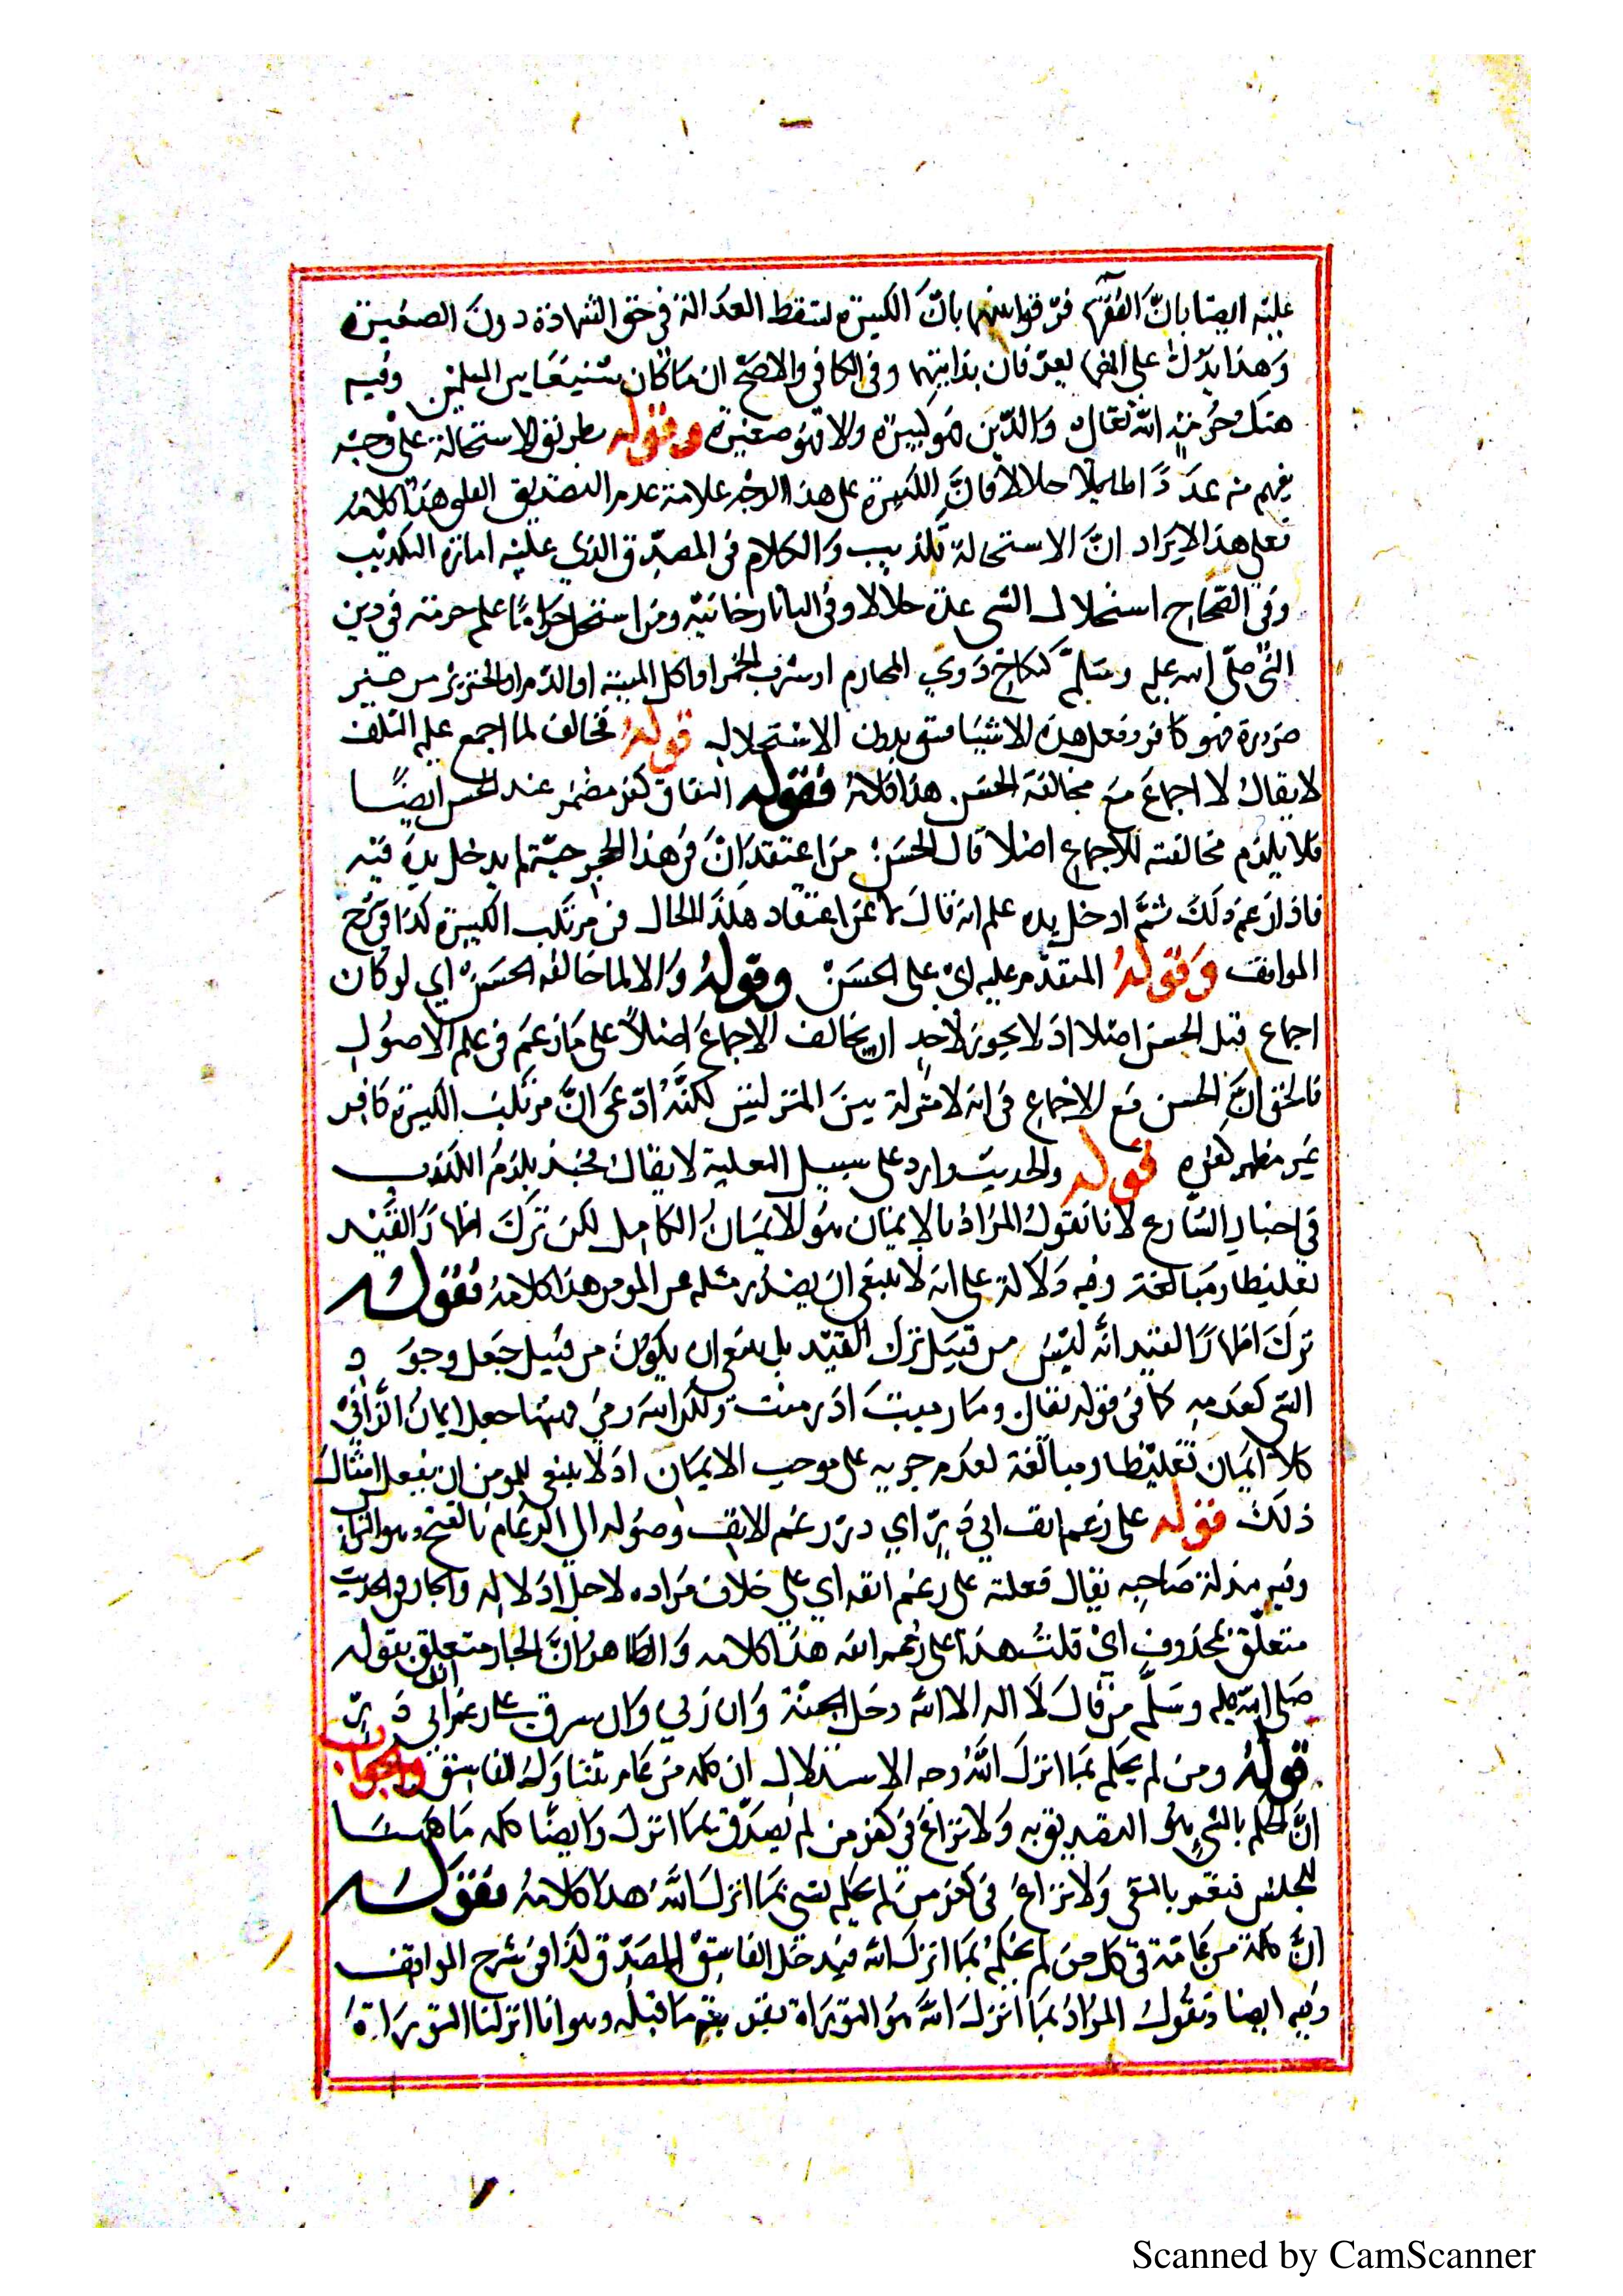 عليه ايضا بانّ الفقهاء فرّقوا بينهما بانّ الكبيرة تسقط العدالة في حق الشهادة دون الصغيرة
وهذا يدلّ على انهما يعرفان بذاتيهما وفي الكافي والاصحّ ان ما كان شنيعا بين المسلمين وفيه
هتك حرمة الله تعالى والدّين فهو كبيرة والا فهو صغيرة وقوله بطريق الاستحالة على وجه
يفهم منه عدّ حلالا فانّ الكبيرة على هذا الوجه علامة عدم التصديق القلبي هذا كلامه
فعلى هذا الايراد انّ الاستحالة تكذيب والكلام في المصدّق الذي عليه امارة التكذيب
وفي الصّحاح استحلال الشي عدّه حلالا وفي التاتارخانيّة ومن استحل حرامًا علم حرمته في دين
النبي صلّى الله عليه وسلّم كنكاح ذوي المحارم او شرب الخمر او اكل الميتة او الدّم او الخنزير من غير
ضرورة فهو كافر وفعل هذه الاشيا فسق بدون الاستحلال قوله مخالف لما اجمع عليه السّلف
لا يقال لا اجماع مع مخالفة الحسن هذا كلامه فقوله النفاق كفر مضمر عند الحسن ايضًا
فلا يلزم مخالفته للاجماع اصلا قال الحسن من اعتقد انّ في هذا الجحر حيّة لم يدخل يده فيه
فاذا زعم ذلك ثمّ ادخل يده علم انه قال لا عن اعتقاد هكذا الحال في مرتكب الكبيرة كذا في شرح
المواقف وقوله المتقدّم عليه اي على الحسن وقوله والا لما خالفه الحسن اي لو كان
اجماع قبل الحسن اصلا اذ لا يجوز لاحد ان يخالف الاجماع اصلاً على ما زعم في علم الاصول
فالحق انّ الحسن مع الاجماع في انه لا منزلة بين المنزلتين لكنّه ادّعى انّ مرتكب الكبيرة كافر
غير مظهر كفره قوله والحديث وارد على سبيل التغليظ لا يقال فحينئذ يلزم الكذب
في اخبار الشارع لانا نقول المراد بالايمان هو الايمان الكامل لكن ترك اظهار القيد
تغليظا ومبالغة وفيه دلالة على انه لا ينبغي ان يصدر مثله عن المومن هذا كلامه فقوله
ترك اظهار القيد انّه ليس من قبيل ترك القيد بل ينبغي ان يكون من قبيل جعل وجود
الشي كعدمه كما في قوله تعالى وما رميت اذ رميت ولكن الله رمى فههنا جعل ايمان الزاني
كلا ايمان تغليظا ومبالغة لعدم جريه على موجب الايمان اذ لا ينبغي للمومن ان يفعل امثال
ذلك قوله على رغم انف ابي ذرّ اي ذرّ رغم الانف وصوله الى الرغام بالفتح وهو التراب
وفيه مذلة صاحبه يقال فعلته على رغم انفه اي على خلاف مراده لاجل اذلاله والجار في الحديث
متعلّق بمحذوف اي قلت هذا على رغم انفه هذا كلامه والظاهر انّ الجار متعلق بقوله
صلى الله عليه وسلّم من قال لا اله الا الله دخل الجنّة وان زنى وان سرق على رغم انف ابي ذرّ
قوله ومن لم يحكم بما انزل الله وجه الاستدلال ان كلمة من عام يتناول الفاسق والجواب
انّ الحكم بالشي هو التصديق به ولا نزاع في كفر من لم يصدّق بما انزل وايضًا كلمه ما ههنا
للجنس فيعم بالنفي ولا نزاع في كفر من لم يحكم بشي مما انزل الله هذا كلامه فقوله
انّ كلمة من عامّة في كل من لم يحكم بما انزل الله فيدخل الفاسق المصدّق كذا في شرح المواقف
وفيه ايضا ونقول المراد بما انزل الله هو التوراة بقرينة ما قبله وهو انا انزلنا التوراة
Scanned by CamScanner